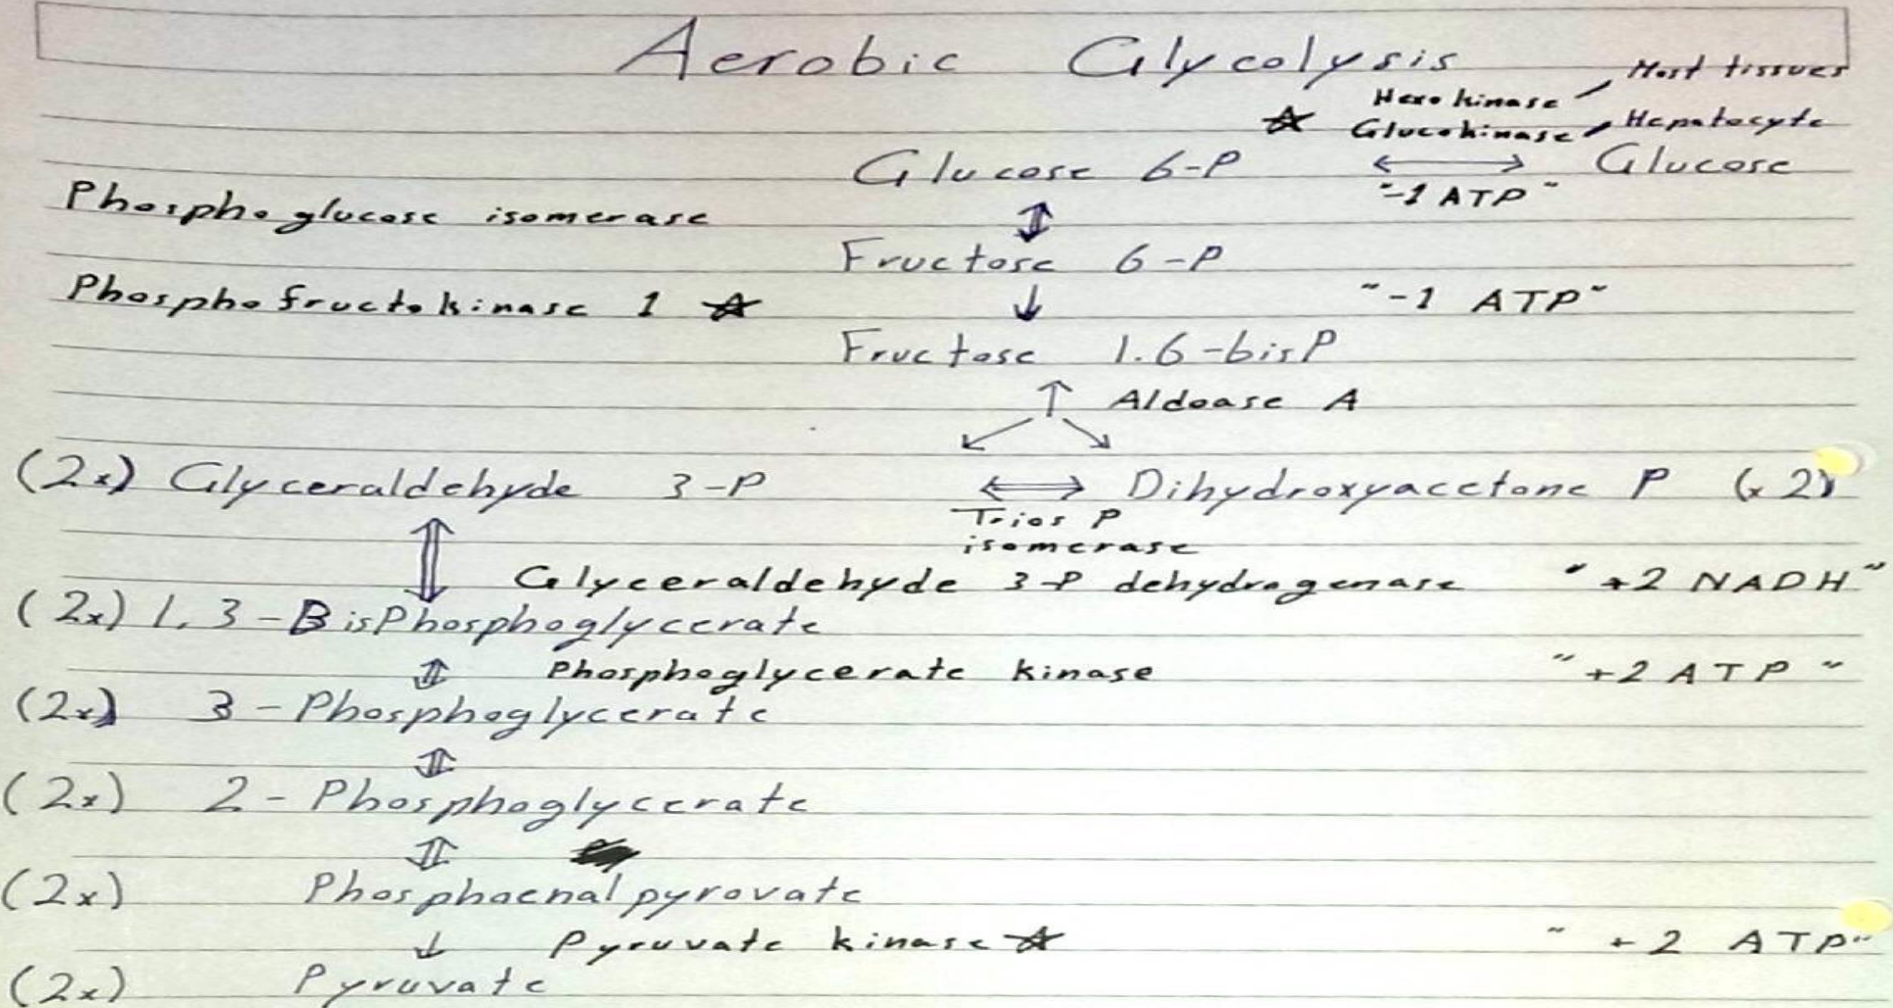 Aerobic Glycolysis
Most tissues
Hexokinase
☆ Glucokinase Hepatocyte
Glucose 6-P ⟷ Glucose
"-1 ATP"
Phosphoglucose isomerase ⇕
Fructose 6-P
Phosphofructokinase 1 ☆ ↓ "-1 ATP"
Fructose 1.6-bisP
↑ Aldoase A
↙ ↘
(2x) Glyceraldehyde 3-P ⟺ Dihydroxyacetone P (x2)
Trios P
isomerase
⇕ Glyceraldehyde 3-P dehydrogenase "+2 NADH"
(2x) 1,3-BisPhosphoglycerate
⇕ Phosphoglycerate kinase "+2 ATP"
(2x) 3-Phosphoglycerate
⇕
(2x) 2-Phosphoglycerate
⇕
(2x) Phosphoenolpyrovate
↓ Pyruvate kinase ☆ "+2 ATP"
(2x) Pyruvate